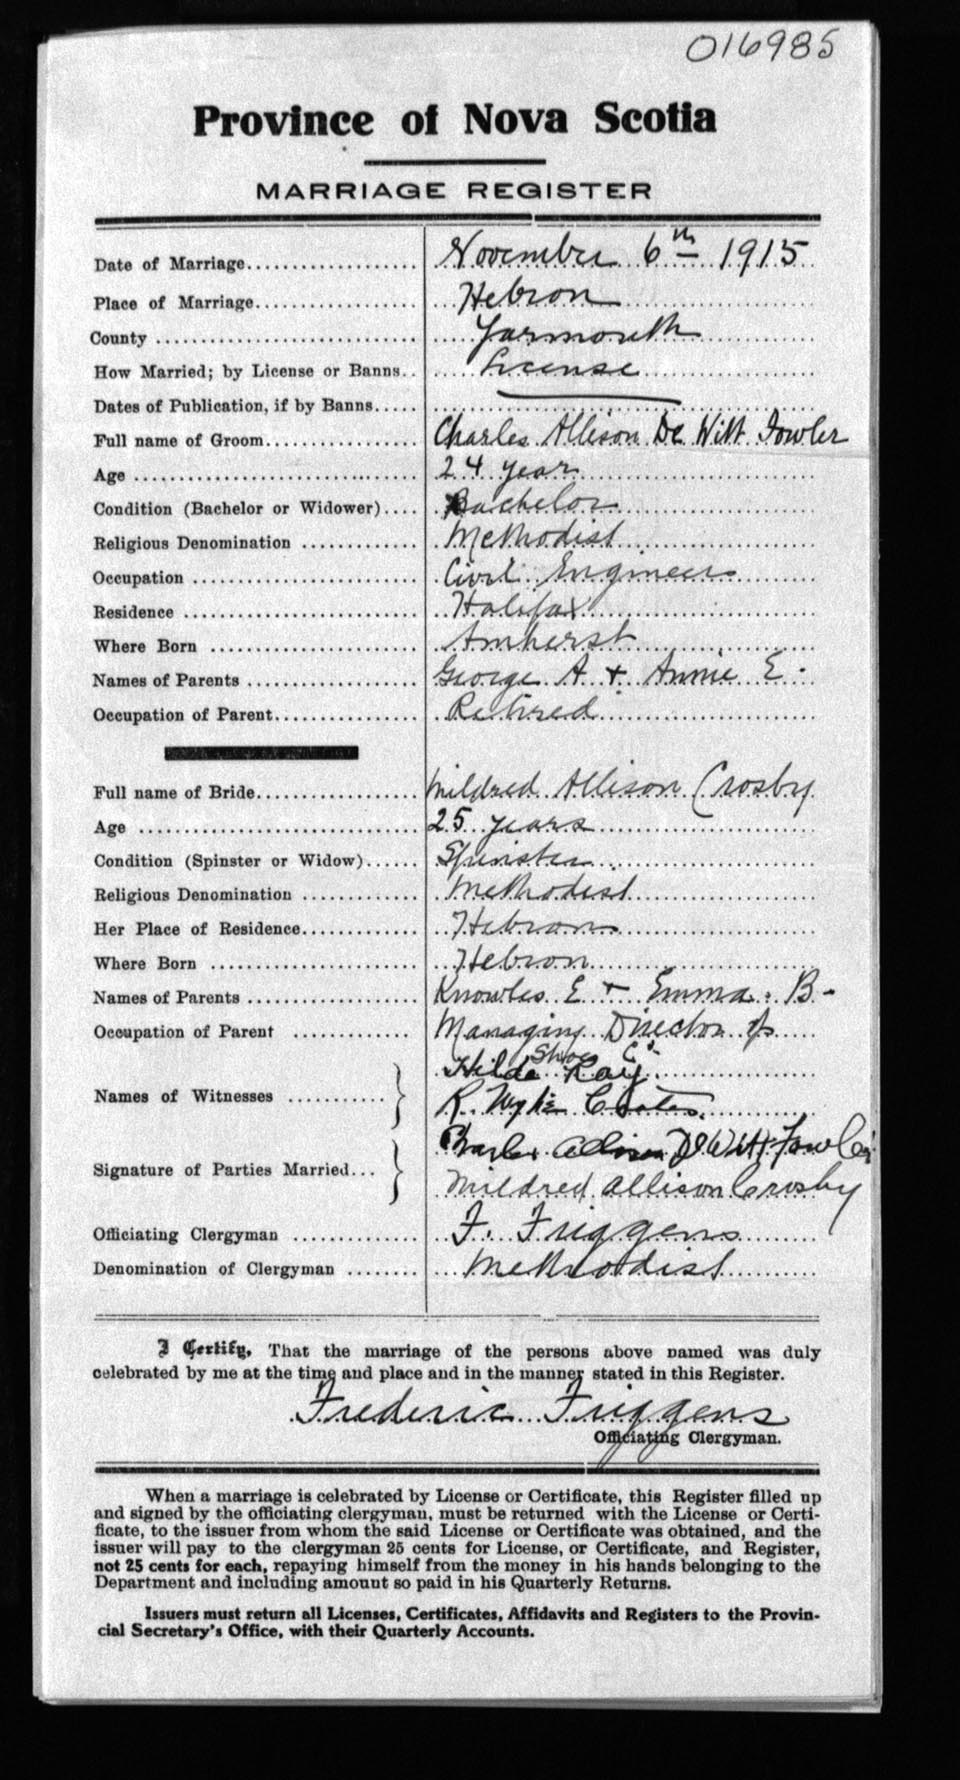 016985
Province of Nova Scotia
MARRIAGE REGISTER
Date of Marriage.................... November 6th 1915
Place of Marriage................... Hebron
County .............................. Yarmouth
How Married; by License or Banns.. License
Dates of Publication, if by Banns.....
Full name of Groom.................. Charles Allison De Witt Fowler
Age .................................. 24 year
Condition (Bachelor or Widower).... Bachelor
Religious Denomination ............. Methodist
Occupation .......................... Civil Engineer
Residence ........................... Halifax
Where Born ......................... Amherst
Names of Parents ................... George A + Annie E -
Occupation of Parent................ Retired
Full name of Bride................... Mildred Allison Crosby
Age ................................. 25 years
Condition (Spinster or Widow)...... Spinster
Religious Denomination ............. Methodist
Her Place of Residence.............. Hebron
Where Born ......................... Hebron
Names of Parents ................... Knowles E + Emma B -
Occupation of Parent .............. Managing Director of
Shoe Co.
Names of Witnesses ........... Hilda Ray
R. Coates.
Signature of Parties Married... Charles Allison DeWitt Fowler
Mildred Allison Crosby
Officiating Clergyman .............. F. Friggens
Denomination of Clergyman ........ Methodist
I Certify, That the marriage of the persons above named was duly
celebrated by me at the time and place and in the manner stated in this Register.
Frederic Friggens
Officiating Clergyman.
When a marriage is celebrated by License or Certificate, this Register filled up
and signed by the officiating clergyman, must be returned with the License or Certi-
ficate, to the issuer from whom the said License or Certificate was obtained, and the
issuer will pay to the clergyman 25 cents for License, or Certificate, and Register,
not 25 cents for each, repaying himself from the money in his hands belonging to the
Department and including amount so paid in his Quarterly Returns.
Issuers must return all Licenses, Certificates, Affidavits and Registers to the Provin-
cial Secretary's Office, with their Quarterly Accounts.